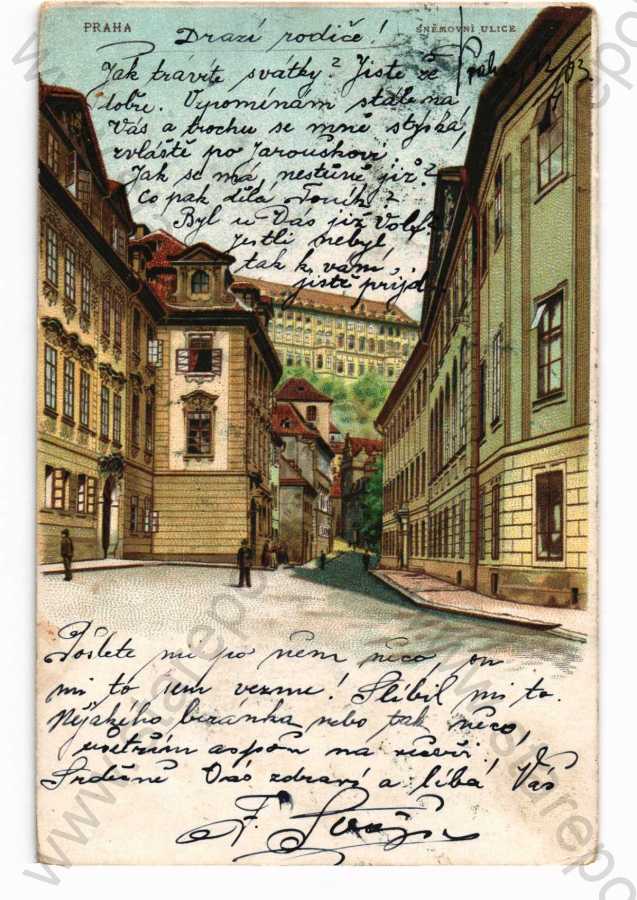 PRAHA
SNĚMOVNÍ ULICE
Drazí rodiče!
Jak trávíte svátky? Jistě že
dobře. Vzpomínám stále na
Vás a trochu se mně stýská,
zvláště po Jarouškovi
Jak se má, nestůně již?
Co pak dělá Toník?
Byl u Vás již
Jestli nebyl,
tak k vám,
jistě přijde
Pošlete mi po něm něco, on
mi to sem vezme! Slíbil mi to.
Nějakého beránka nebo tak něco,
ušetřím aspoň na večeři.
Srdečně Vás zdraví a líbá Váš
F.
www.starepohledy